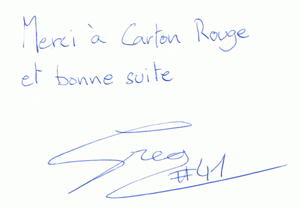 Merci à Carton Rouge
et bonne suite
Greg
#41